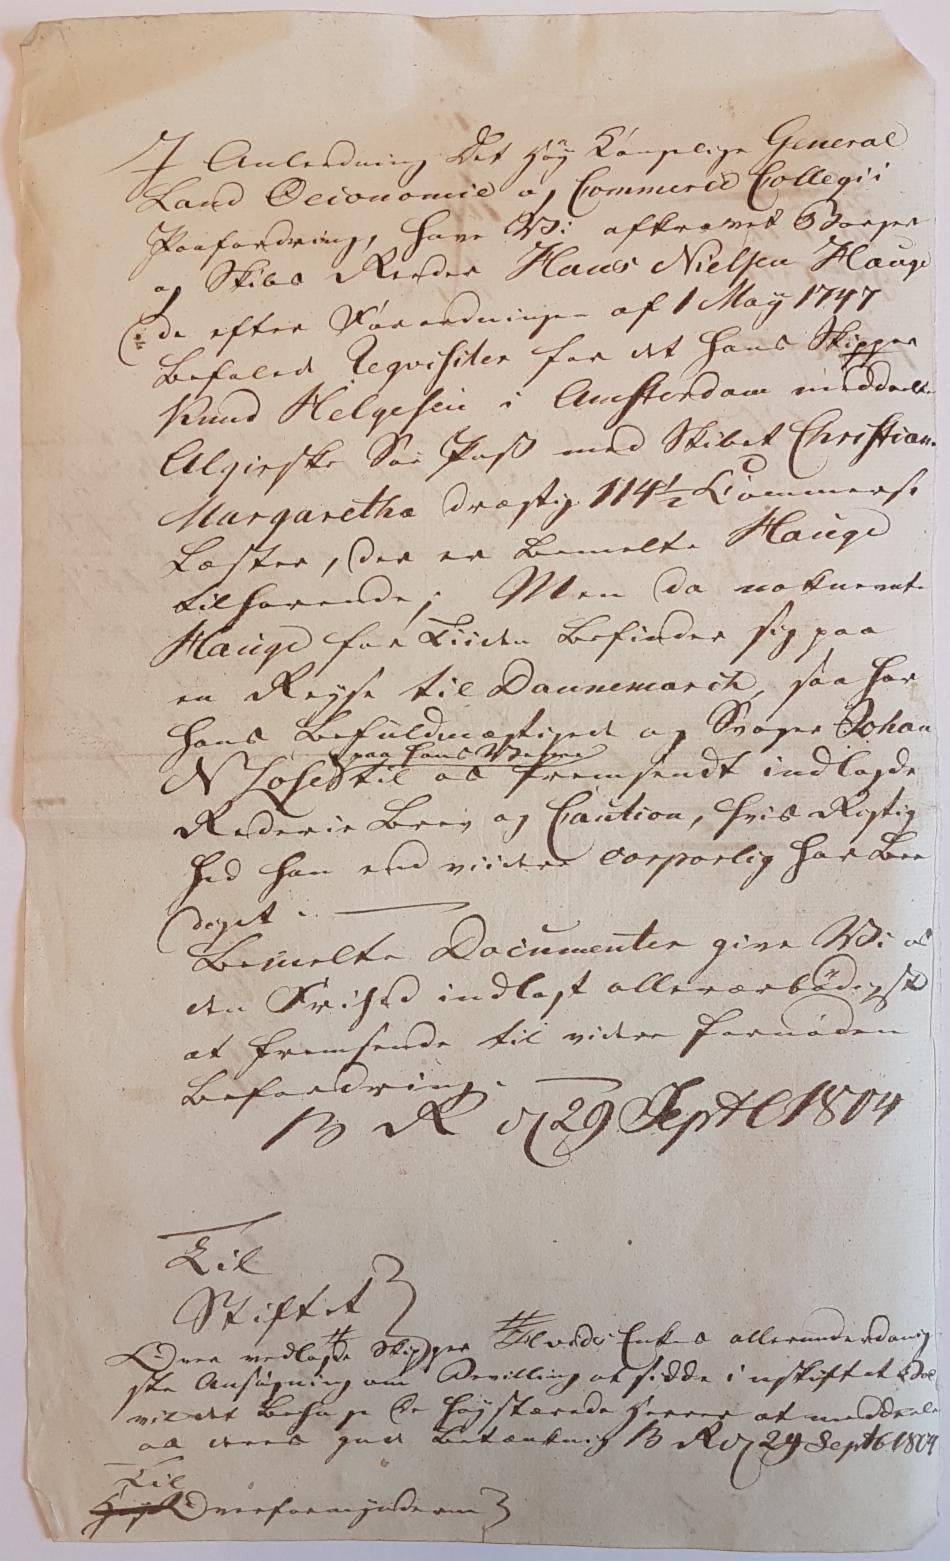 I Anledning Det Høy Kongelige General
Land Oeconomie og Commerce Collegii
Paafordring, have Vi affkrævet Borger
og Skibs Ræder Hans Nielsen Hauge
de efter Forordningen af 1 May 1747
befalede Reqvisiter for det hans Skipper
Knud Helgesen i Amsterdam meddeelte
Algierske Søe Pass med Skibet Christian
Margaretha drægtig 114 1/2 Commerse
Læster, der er bemelte Hauge
tilhørende; Men da noksnevnte
Hauge for Tiiden befinder sig paa
en Reyse til Dannemarck, saa har
hans Befuldmægtigede og Svoger Johan
paa hans Vegne
N Loses til os fremsendt indlagde
Rederie Brev og Caution, hvis Rigtig
hed han end viidere corporlig har bee
diget. —
Bemelte Documenter give Vi os
den Frihed indlagt allerærbødigst
at fremsende til videre fornøden
Befordring. —
B R d 29 Septb 1804
Til
Stiftet
Over vedlagte Skipper Enkes allerunderdanig
ste Ansøgning om Bevilling at sidde i uskiftet Boe
vil det behage De Høystærede Herrer at meddeele
os deres gode Betænkning B R d 29 Septb 1804
Til
Overformynderne